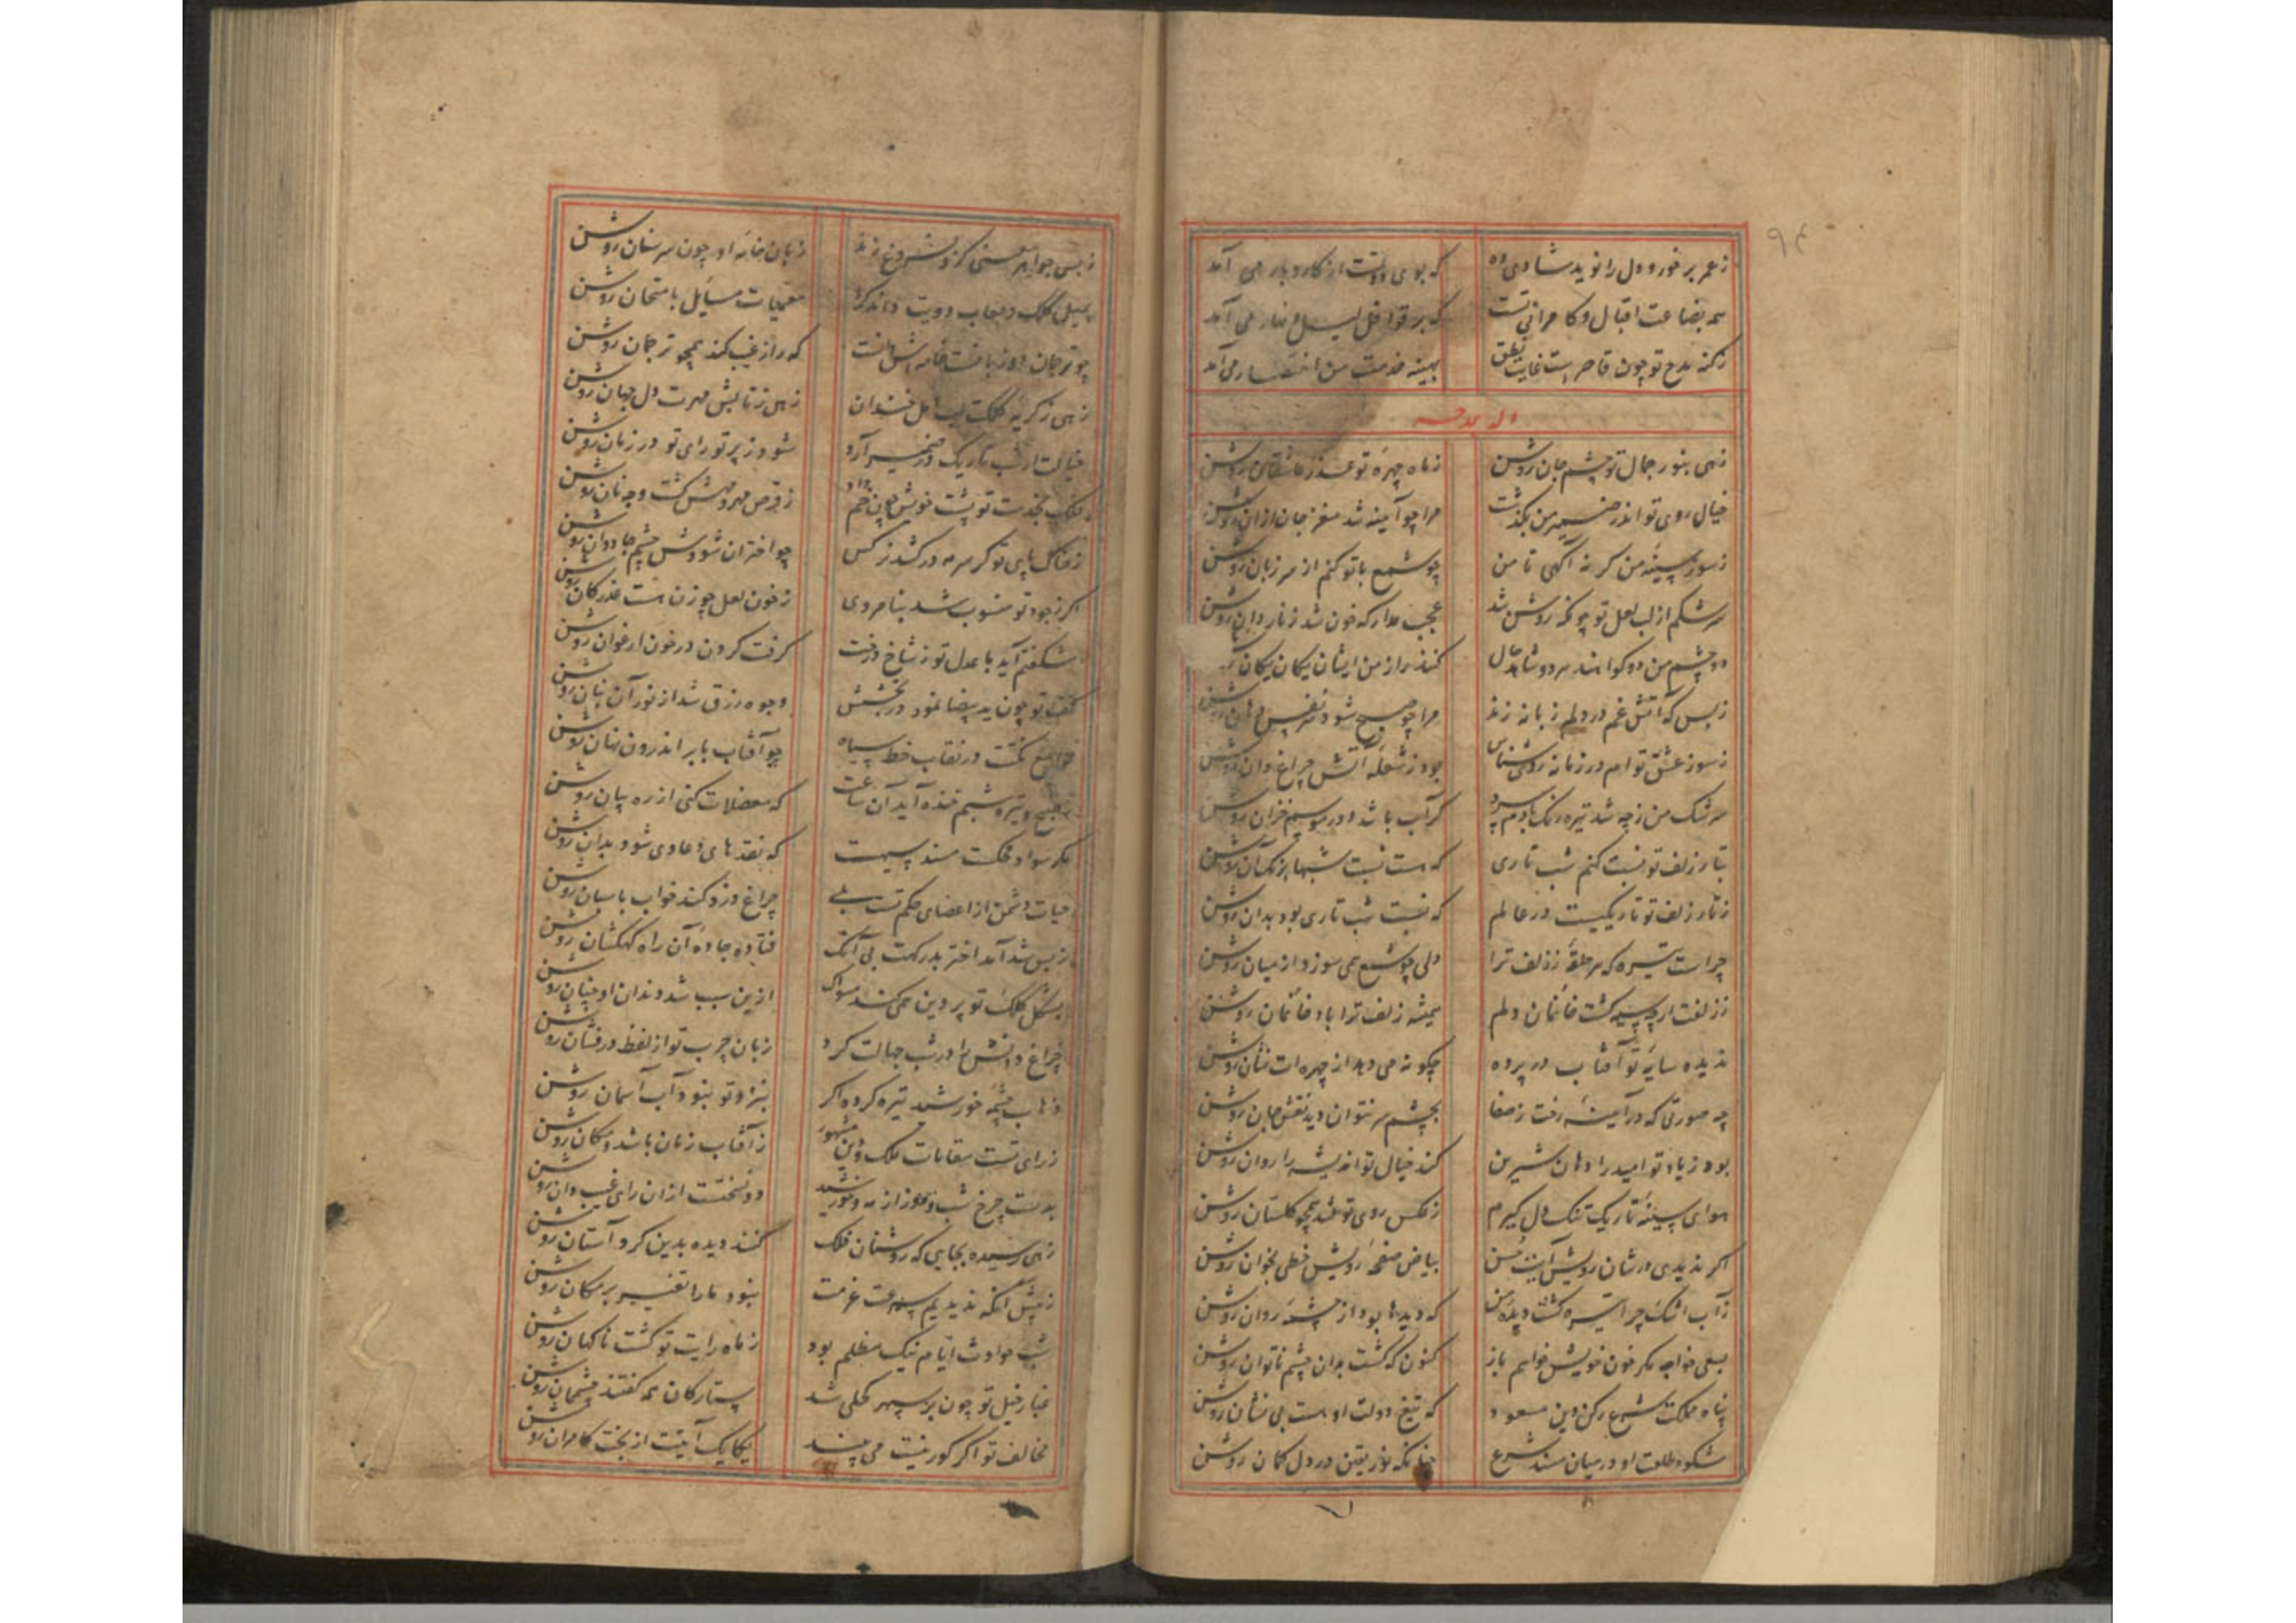 ۹۴
ز عمر برخور و دل را نوید شادی ده که بوی دولت از کار و بار می آمد
همه بضاعت اقبال و کامرانی تست که بر قوافل لیل و نهار می آمد
ز کنه مدح تو چون قاصر است غایت نطق بهینه خدمت من اختصار می آمد
وله یمدحه
زهی بنور جمال تو چشم جان روشن ز ماه چهره تو عذر عاشقان روشن
خیال روی تو اندر ضمیر من بگذشت مرا چو آینه شد مغز جان از ان روشن
ز سوز سینه من گر نه آگهی تا من چو شمع با تو کنم از سر زبان روشن
سرشکم از لب لعل تو چونکه روشن شد عجب مدار که خون شد ز ناردان روشن
دو چشم من دو گواهند هر دو شاهد حال کنند راز من ایشان یکان یکان
ز بس که آتش غم در دلم زبانه زند مرا چو صبح شود نفس دهان روشن
ز سوز عشق تو ام در زمانه روشناس بود ز شعله آتش چراغ دان روشن
سرشک من ز چه شد تیره رنگ با دم سرد گر آب باشد در موسم خزان روشن
بتار زلف تو نسبت کنم شب تاری که هست نسبت شبها بزنگیان روشن
ز تار زلف تو تاریکیست در عالم که نسبت شب تاری بود بدان روشن
چراست تیره که هر حلقه ز زلف ترا دلی چو شمع همی سوزد از میان روشن
ز زلفت ار چه سیه گشت خانمان دلم همیشه زلف ترا باد خانمان روشن
ندیده سایه تو آفتاب در پرده چگونه می دهد از چهره ات نشان روشن
چه صورتی که در آیینه رخت ز صفا بچشم سر بتوان دید نقش جان روشن
بود ز یاد تو امید را دهان شیرین کند خیال تو اندیشه را روان روشن
هوای سینه تاریک تنگ دل گیرم ز عکس روی تو شد همچو گلستان روشن
اگر ندیدی در شان رویش آیت حسن بیاض صفحه رویش خطی بخوان روشن
ز آب اشک چرا تیره گشت دیده من که دیدها بود از چشمه روان روشن
بلی خواجه مگر خون خویش خواهم باز کنون که گشت بدان چشم ناتوان روشن
پناه مملکت شرع رکن دین مسعود که تیغ دولت او هست بی فسان روشن
شکوه طلعت او در میان مسند شرع چنانکه نور یقین در دل گمان روشن
ز بس جواهر معنی کزو فروغ زند زبان خامه او چون سر سنان روشن
بمیل کلک و لعاب دویت داند کرد معمیات مسایل بامتحان روشن
چو ترجمان دو زبانست خامه اش زانست که راز غیب کند همچو ترجمان روشن
زهی ز گریه کلکت لب امل خندان زهی ز تابش مهرت دل جهان روشن
خیالت ار شب تاریک در ضمیر آرد شود ز پرتو رای تو در زمان روشن
فلک بخدمت تو پشت خویش چون خم داد ز قرص مهر و مهش گشت وجه نان روشن
ز خاک پای تو گر سرمه در کشد نرگس چو اختران شودش چشم جاودان روشن
اگر ز جود تو منسوب شد بنامردی ز خون لعل چو زن هست عذر کان روشن
شگفتم آید با عدل تو ز شاخ درخت گرفت گردن در خون ارغوان روشن
کف تو چون ید بیضا نمود در بخشش وجوه رزق شد از نور آن بنان روشن
نکتت در نقاب خط سیاه چو آفتاب بابر اندرون نهان روشن
ز صبح و تیره شبم خنده آید آن ساعت که معضلات کنی از ره بیان روشن
مگر سواد محکت مسند سیهت که نقدهای دعاوی شود بدان روشن
حیات دشمن از اعضای حکم تست بلی چراغ دزد کند خواب پاسبان روشن
ز بس شد آمد اختر بدرگهت بی آنک فتاده جاده آن راه کهکشان روشن
بشکل کلک تو پروین همی کند مسواک ازین سبب شد دندان او چنان روشن
چراغ دانش را در شب جهالت کرد زبان چرب تو از لفظ درفشان روشن
ذهاب چشمه خورشید تیره کرده اگر بنزد تو نبود آب آسمان روشن
ز رای تست مقامات ملک و دین مشهور ز آفتاب زمان باشد و مکان روشن
بدست چرخ شب و روز از مه و خورشید دو نسختست از ان رای غیب دان روشن
زهی رسیده بجایی که روشنان فلک کنند دیده بدین گرد آستان روشن
ز پیش آنکه ندیدیم سرعت عزمت نبود ما را تفسیر بر مکان روشن
شب حوادث ایام نیک مظلم بود ز ماه رایت تو گشت ناگهان روشن
غبار خیل تو چون بر سپهر محلی شد ستارگان همه گفتند چشممان روشن
مخالف تو اگر کور نیست می بیند یکایک آیتت از بخت کامران روشن